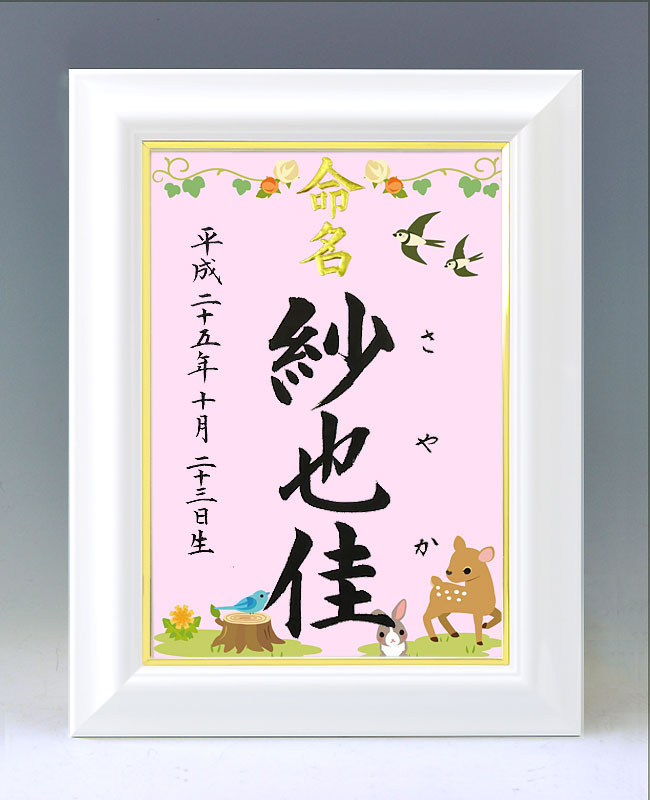 命名
さやか
紗也佳
平成二十五年十月二十三日生